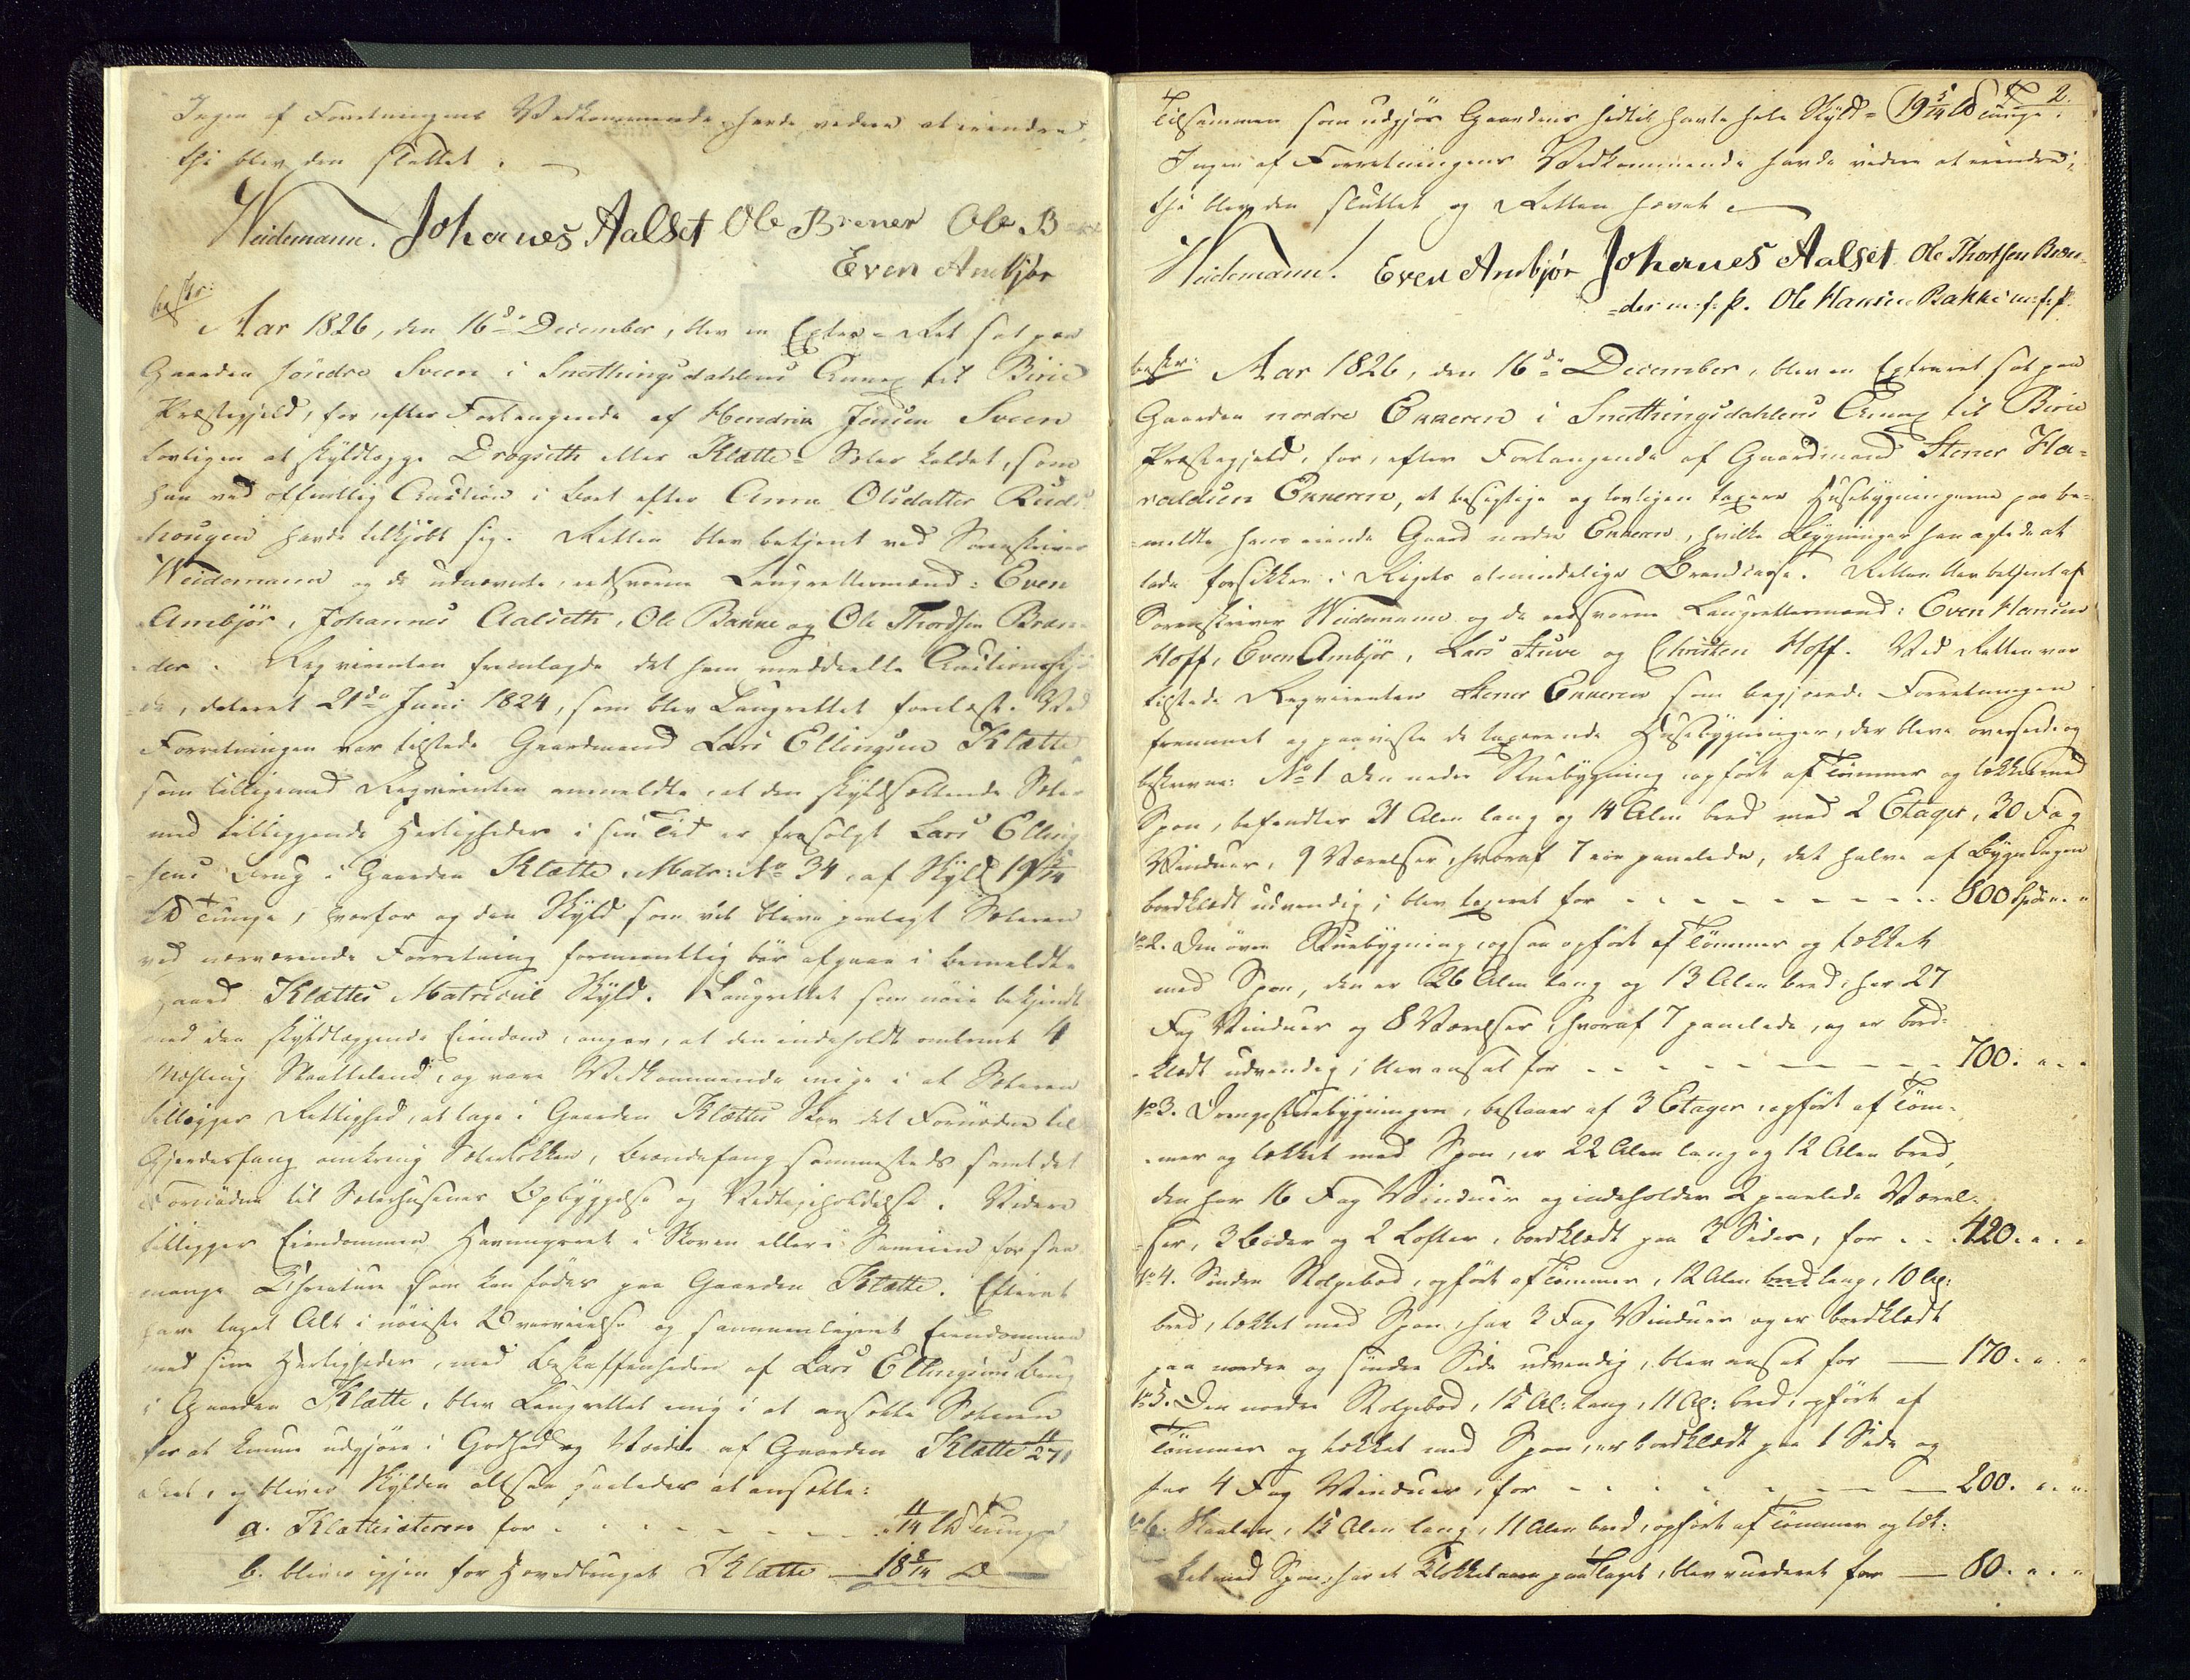 Ingen af Forretningens Vedkommende havde videre at erindre,
thi blev den sluttet. —
Weidemann. Johanes Aalset Ole Brener Ole B
Even Ambjør
beskr:
Aar 1826, den 16de December, blev en Extra-Ret sat paa
Gaarden søndre Sveen i Snerthingsdahlens Annex til Birie
Præstegjeld, for, efter Forlangende af Hendrik Jensen Sveen
lovligen at skyldlægge Drogseth eller Klætte-Sæter kaldet, som
han ved offentlig Auction i Boet efter Anne Olsdatter Ruds-
hougen havde tilkjøbt sig. Retten blev betjent ved Sorenskriver
Weidemann og de udnævnte, eedsvorne Laugrettesmænd: Even
Ambjør, Johannes Aalseth, Ole Bakke og Ole Thordsen Bræn-
der. Reqvirenten fremlagde det ham meddeelte Auctionsskjø
de, dateret 21de Juni 1824, som blev Laugrettet forelæst. Ved
Forretningen var tilstede Gaardmand Lars Ellingsen Klætte
som tilligemed Reqvirenten anmeldte, at den skyldsættende Sæter
med tilliggende Herligheder i sin Tid er frasolgt Lars Elling-
sens Brug i Gaarden Klætte, Matr: No 34, af Skyld 19 5/14
lb Tunge, hvorfor og den Skyld, som vil blive paalagt Sæteren
ved nærværende Forretning formeentlig bør afgaae i bemeldte
Gaard Klættes Matricul Skyld. Laugrettet som nøie bekjendt
med den skyldlæggende Eiendom, angav, at den indeholdt omtrent 4
Mæsling Slaatteland, og vare Vedkommende enige i at Sæteren
tillægges Rettighed, at tage i Gaarden Klættes Skov det Fornødne til
Gjerdesfang omkring Sæterløkken, Brændefang sammesteds samt det
Fornødne til Sæterhusenes Opbyggelse og Vedligeholdelse. Videre
tilligger Eiendommen Havnegang i Skoven eller i Sameien for saa
mange Creature som kan fødes paa Gaarden Klætte. Efterat
have taget Alt i nøieste Overveielse og sammenlignet Eiendommen
med sine Herligheder, med Beskaffenheden af Lars Ellingsens Brug
i Gaarden Klætte, blev Laugrettet enig i at ansætte Sæteren
for at kunne udgjøre i Godhed og Værdie af Gaarden Klætte 11/271
Deel, og bliver Skylden altsaa saaledes at ansætte:
a. Klættesæteren for - - - - - - - 11/14 lb Tunge
b. bliver igjen for Hovedbruget Klætte — 18 8/14 D —
2.
Tilsammen som udgjør Gaardens hidtil havte hele Skyld = 19 5/14 lb Tunge.
Ingen af Forretningens Vedkommende havde videre at erindre,
thi blev den sluttet og Retten hævet. —
Weidemann. Even Ambjør Johanes Aalset. Ole Thordsen Bræn-
=der m: f: p. Ole Hansen Bakke m: f: p.
beskr: Aar 1826, den 16de December, blev en Extraret sat paa
Gaarden nordre Enneren i Snerthingsdahlens Annex til Birie
Præstegjeld, for, efter Forlangende af Gaardmand Stener Ha-
raldsen Enneren, at besigtige og lovligen taxere Husebygningerne paa be-
=meldte hans eiende Gaard nordre Enneren, hvilke Bygninger han agtede at
lade forsikkre i Rigets almindelige Brandcasse. Retten blev betjent af
Sorenskriver Weidemann og de eedsvorne Laugrettesmænd: Even Hansen
Hoff, Even Ambjør, Lars Stuve og Christen Hoff. Ved Retten var
tilstede Reqvirenten Stener Enneren som begjærede Forretningen
fremmet og paaviste de taxerende Husebygninger, der bleve overseede og
beskrevne: No 1. Den nedre Stuebygning opført af Tømmer og tækket med
Spon, befandtes 31 Alen lang og 14 Alen bred med 2 Etager, 30 Fag
Vinduer, 9 Værelser, hvoraf 7 ere panelede, det halve af Bygningen
bordklædt udvendig; blev taxeret for - - - - - - - - - 800 Spd: " "
No 2. Den øvre Stuebygning, ogsaa opført af Tømmer og tækket
med Spon, den er 26 Alen lang og 13 Alen bred, har 27
Fag Vinduer og 8 Værelser, hvoraf 7 panelede, og er bord-
-klædt udvendig; blev ansat for - - - - - - - - - 700. " " "
No 3. Drengestuebygningen, bestaaer af 3 Etager, opført af Tøm-
-mer og tækket med Spon, er 22 Alen lang og 12 Alen bred,
den har 16 Fag Vinduer og indeholder 2 panelede Værel-
-ser, 3 Boder og 2 Lofter, bordklædt paa 3 Sider, for - - 420. " " "
No 4. Søndre Stolpebod, opført af Tømmer, 12 Alen bred lang, 10 Al:
bred, tækket med Spon, har 3 Fag Vinduer og er bordklædt
paa nordre og søndre Side udvendig, blev ansat for — 170. " " "
No 5. Den nordre Stolpebod, 15 Al: lang, 11 Al: bred, opført af
Tømmer og tækket med Spon, er bordklædt paa 1 Side og
har 4 Fag Vinduer, for - - - - - - - — 200. " " "
No 6. Stalden, 15 Alen lang, 11 Alen bred, opført af Tømmer og tæk-
ket med Spon, har et Klokketaarn paa Taget, blev vurderet for — 80. " " "